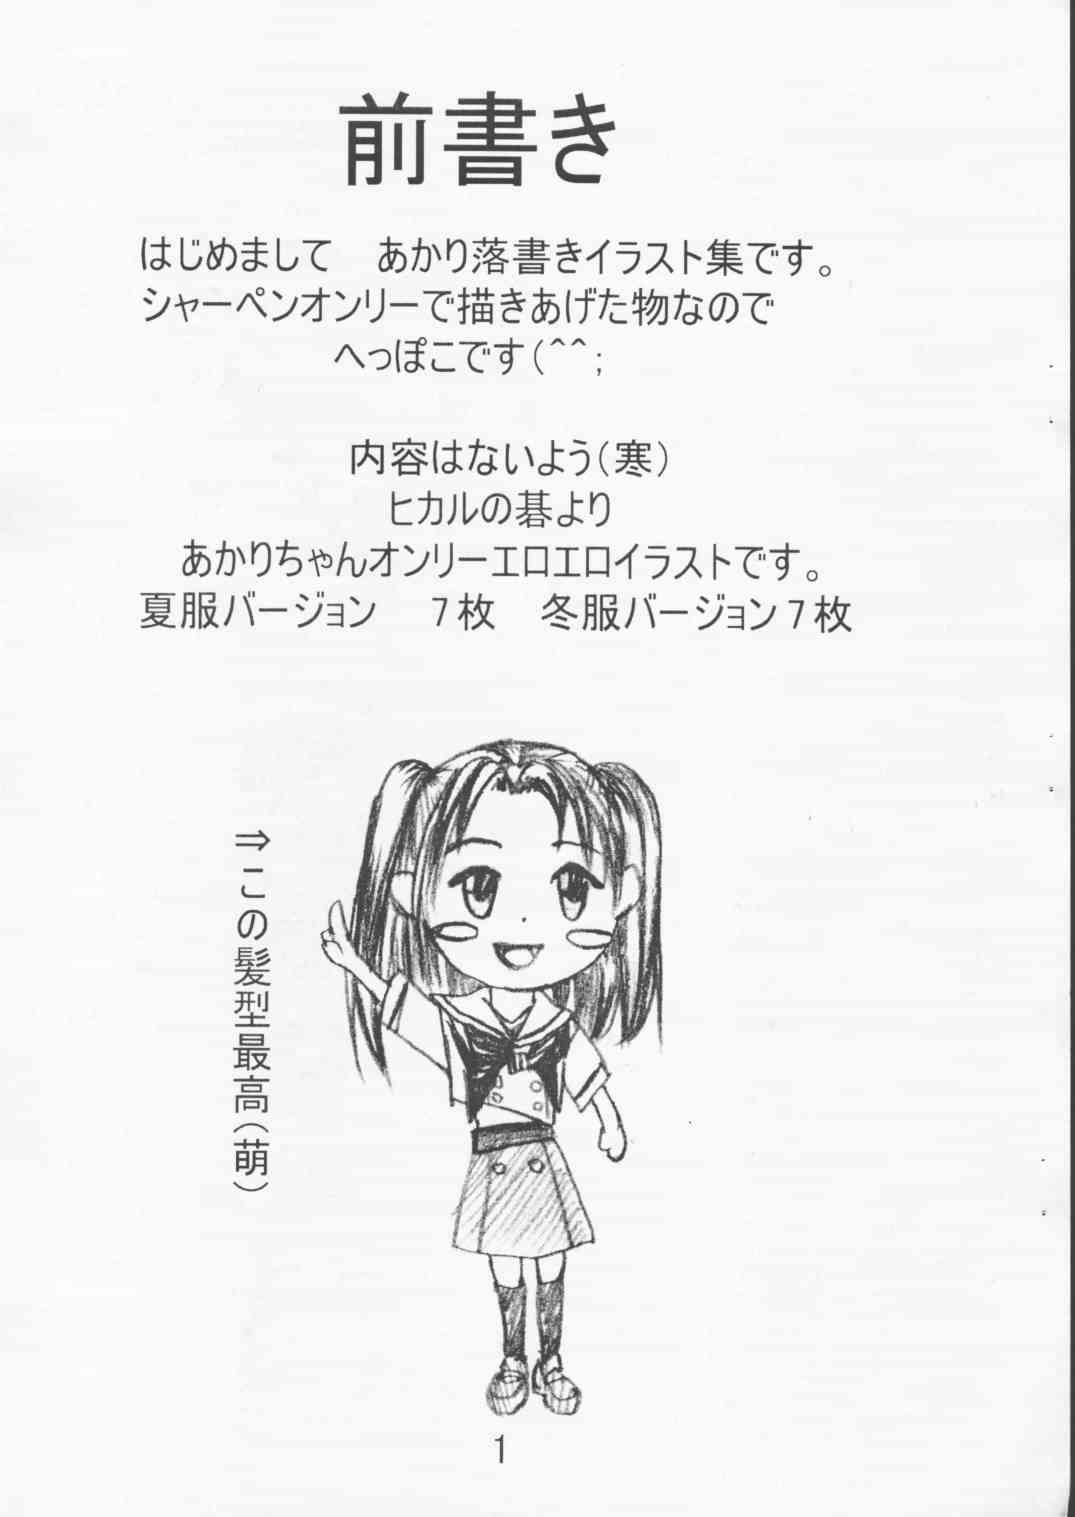 前書き
はじめまして　あかり落書きイラスト集です。
シャーペンオンリーで描きあげた物なので
へっぽこです(^^;
内容はないよう(寒)
ヒカルの碁より
あかりちゃんオンリーエロエロイラストです。
夏服バージョン　7枚　冬服バージョン7枚
⇒この髪型最高(萌)
1